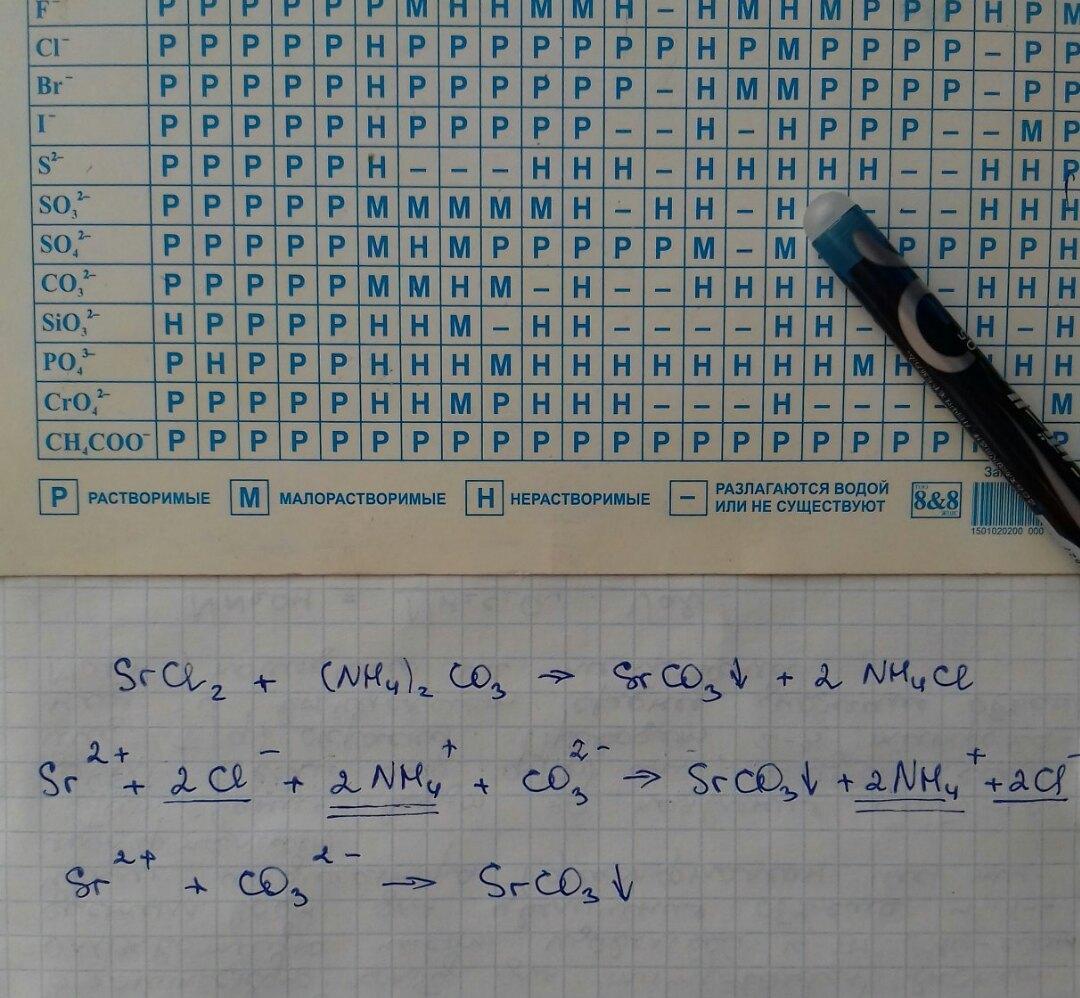 F⁻ Р Р Р Р Р Р М Н Н М М Н – Н М Н М Р Р Р Н Р М
Cl⁻ Р Р Р Р Р Н Р Р Р Р Р Р Р Н Р М Р Р Р Р – Р Р
Br⁻ Р Р Р Р Р Н Р Р Р Р Р Р – Н М М Р Р Р Р – Р Р
I⁻ Р Р Р Р Р Н Р Р Р Р Р – – Н – Н Р Р Р – – М Р
S²⁻ Р Р Р Р Р Н – – – Н Н Н – Н Н Н Н Н – – Н Н Р
SO₃²⁻ Р Р Р Р Р М М М М М Н – Н Н – Н – – – Н Н Н
SO₄²⁻ Р Р Р Р Р М Н М Р Р Р Р Р М – М Р Р Р Р Н
CO₃²⁻ Р Р Р Р Р М М Н М – Н – – Н Н Н Н – Н Н Н
SiO₃²⁻ Н Р Р Р Р Н Н М – Н Н – – – – Н Н – Н – Н
PO₄³⁻ Р Н Р Р Р Н Н Н М Н Н Н Н Н Н Н Н М Н Н Н
CrO₄²⁻ Р Р Р Р Р Н Н М Р Н Н Н – – – Н – – – – М
CH₄COO⁻ Р Р Р Р Р Р Р Р Р Р Р Р Р Р Р Р Р Р Р Р
Р РАСТВОРИМЫЕ М МАЛОРАСТВОРИМЫЕ Н НЕРАСТВОРИМЫЕ – РАЗЛАГАЮТСЯ ВОДОЙ
ИЛИ НЕ СУЩЕСТВУЮТ
8&8
1501020200 000
SrCl₂ + (NH₄)₂ CO₃ → SrCO₃↓ + 2 NH₄Cl
Sr²⁺ + 2Cl⁻ + 2NH₄⁺ + CO₃²⁻ → SrCO₃↓ + 2NH₄⁺ + 2Cl⁻
Sr²⁺ + CO₃²⁻ → SrCO₃↓